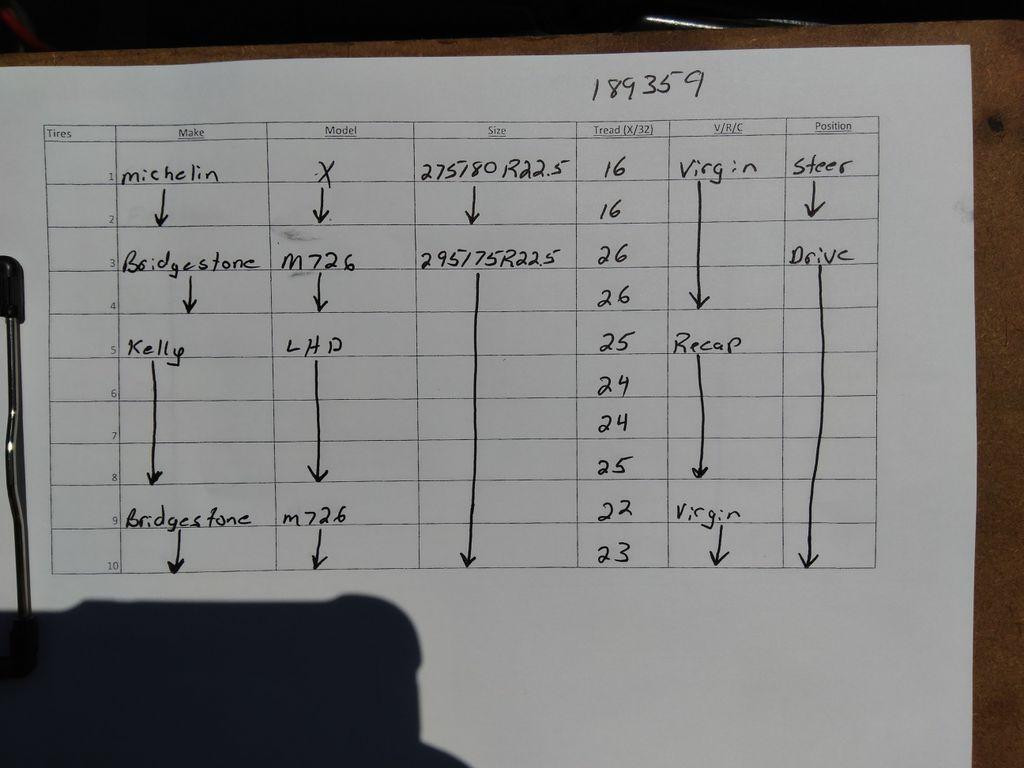 189359
Tires Make Model Size Tread (X/32) V/R/C Position
1 Michelin X 275/80R22.5 16 Virgin Steer
2 16
3 Bridgestone M726 295/75R22.5 26 Drive
4 26
5 Kelly LHD 25 Recap
6 24
7 24
8 25
9 Bridgestone M726 22 Virgin
10 23